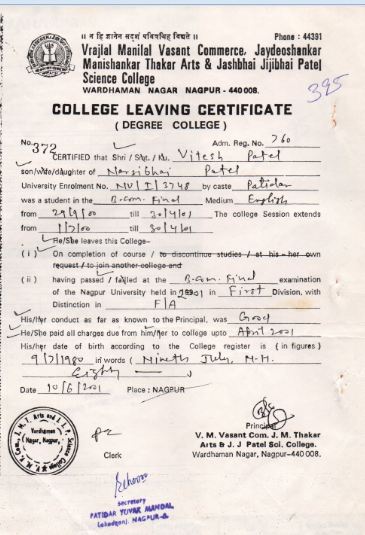 ॥ न हि ज्ञानेन सदृशं पवित्रमिह विद्यते ॥ Phone : 44391
Vrajlal Manilal Vasant Commerce, Jaydeoshankar
Manishankar Thakar Arts & Jashbhai Jijibhai Patel
Science College
WARDHAMAN NAGAR NAGPUR - 440 008.
395
COLLEGE LEAVING CERTIFICATE
( DEGREE COLLEGE )
No. 372 Adm. Reg. No. 760
CERTIFIED that Shri / Smt. / Ku. Vitesh Patel
son/wife/daughter of Narsibhai Patel
University Enrolment No. NU/I/3748 by caste Patidar
was a student in the B.com. Final Medium English
from 29/9/00 till 30/4/01 The college Session extends
from 1/7/00 till 30/4/01
He/She leaves this College-
( i ) On completion of course / to discontinue studies / at his - her own
request / to join another college and
( ii ) having passed / failed at the B.com. Final examination
of the Nagpur University held in 2001 in First Division, with
Distinction in F/A
His/Her conduct as far as known to the Principal, was Good
He/She paid all charges due from him/her to college upto April 2001
His/her date of birth according to the College register is ( in figures )
9/7/1980 in words ( Nineth July, N.H.
Eighty )
Date 10/6/2001 Place : NAGPUR
Principal
Clerk
V. M. Vasant Com. J. M. Thakar
Arts & J. J Patel Sci. College.
Wardhaman Nagar, Nagpur-440 008.
Wardhaman
Nagar, Nagpur.
secretary
PATIDAR YUVAK MANDAL
NAGPUR-8